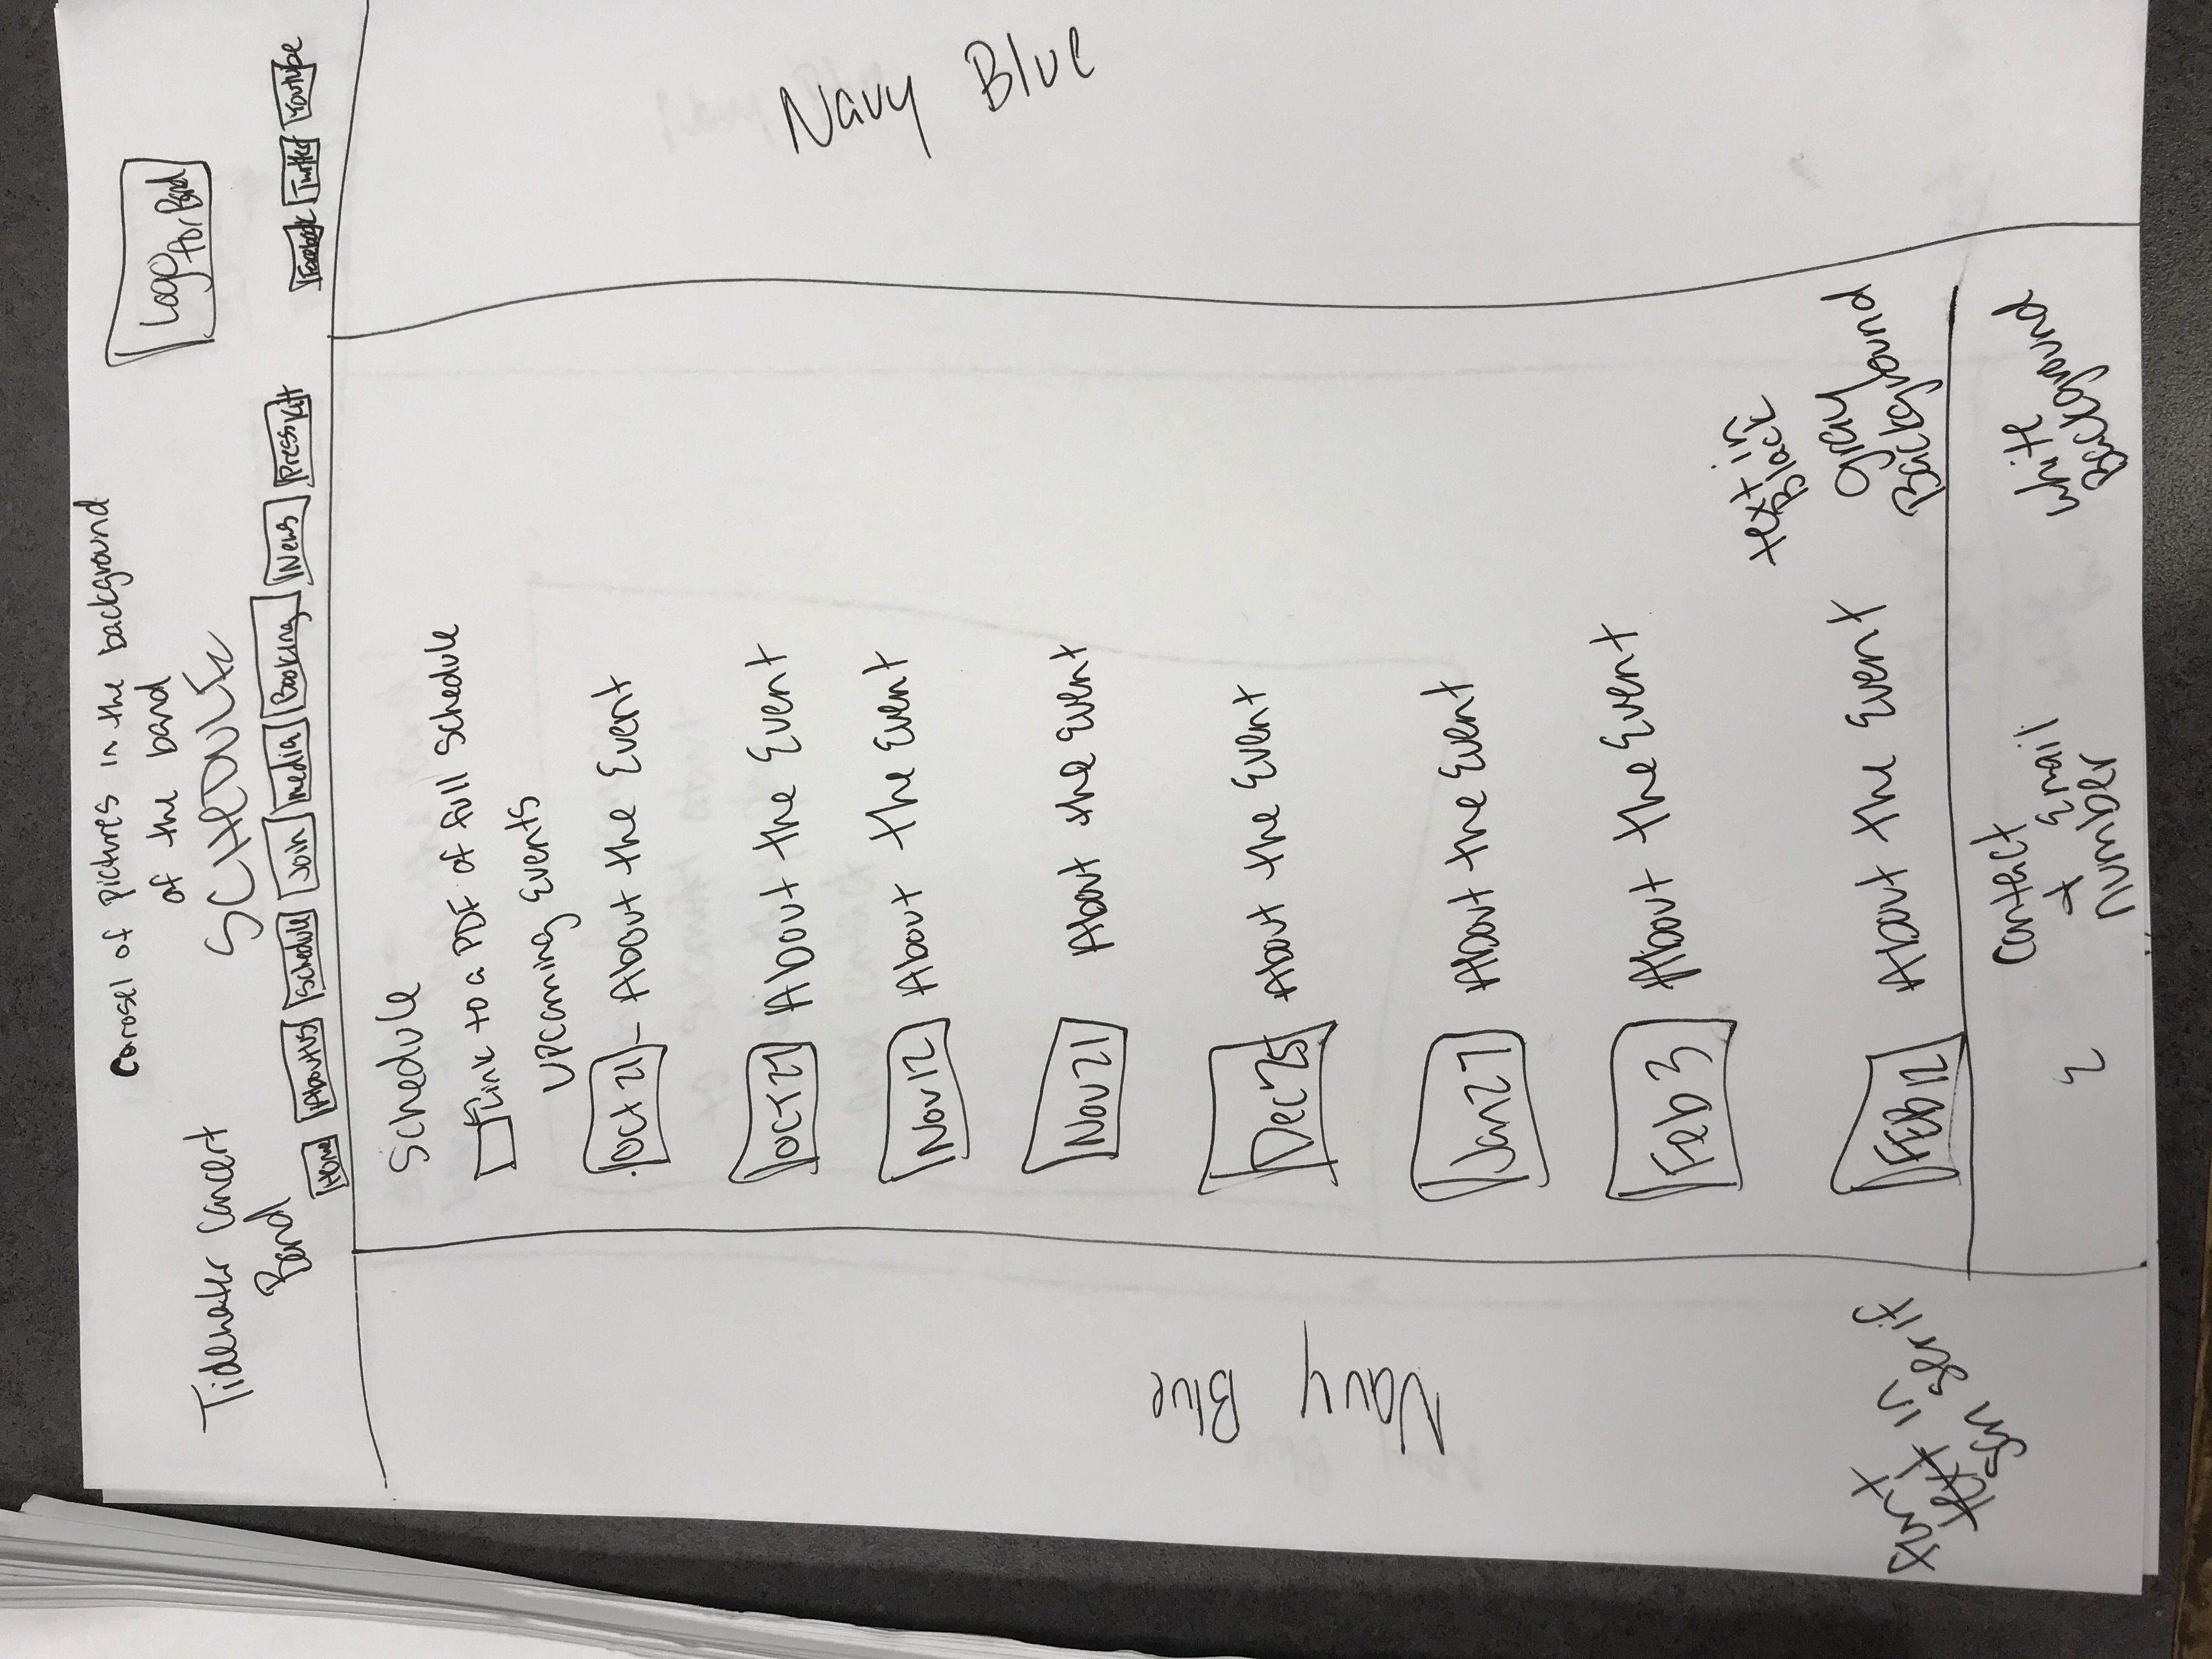 Carosel of pictures in the background
of the band
Logo
for Band
Tidewater Concert
Band
SCHEDULE
Home
About US
Schedule
Join
media
Booking
News
Press Kitt
Facebook
Twitter
Youtube
Schedule
Link to a PDF of full Schedule
Upcoming Events
Oct 21 - About the Event
OCT 27 About the Event
Nov 12 About the Event
Nov 21 About the Event
Dec 25 About the Event
Jan 27 About the Event
Feb 3 About the Event
FEB 12 About the Event
Navy Blue
Navy Blue
text in
Black
gray
Background
font
text in
san serif
Contact
+ Email
number
white
Background